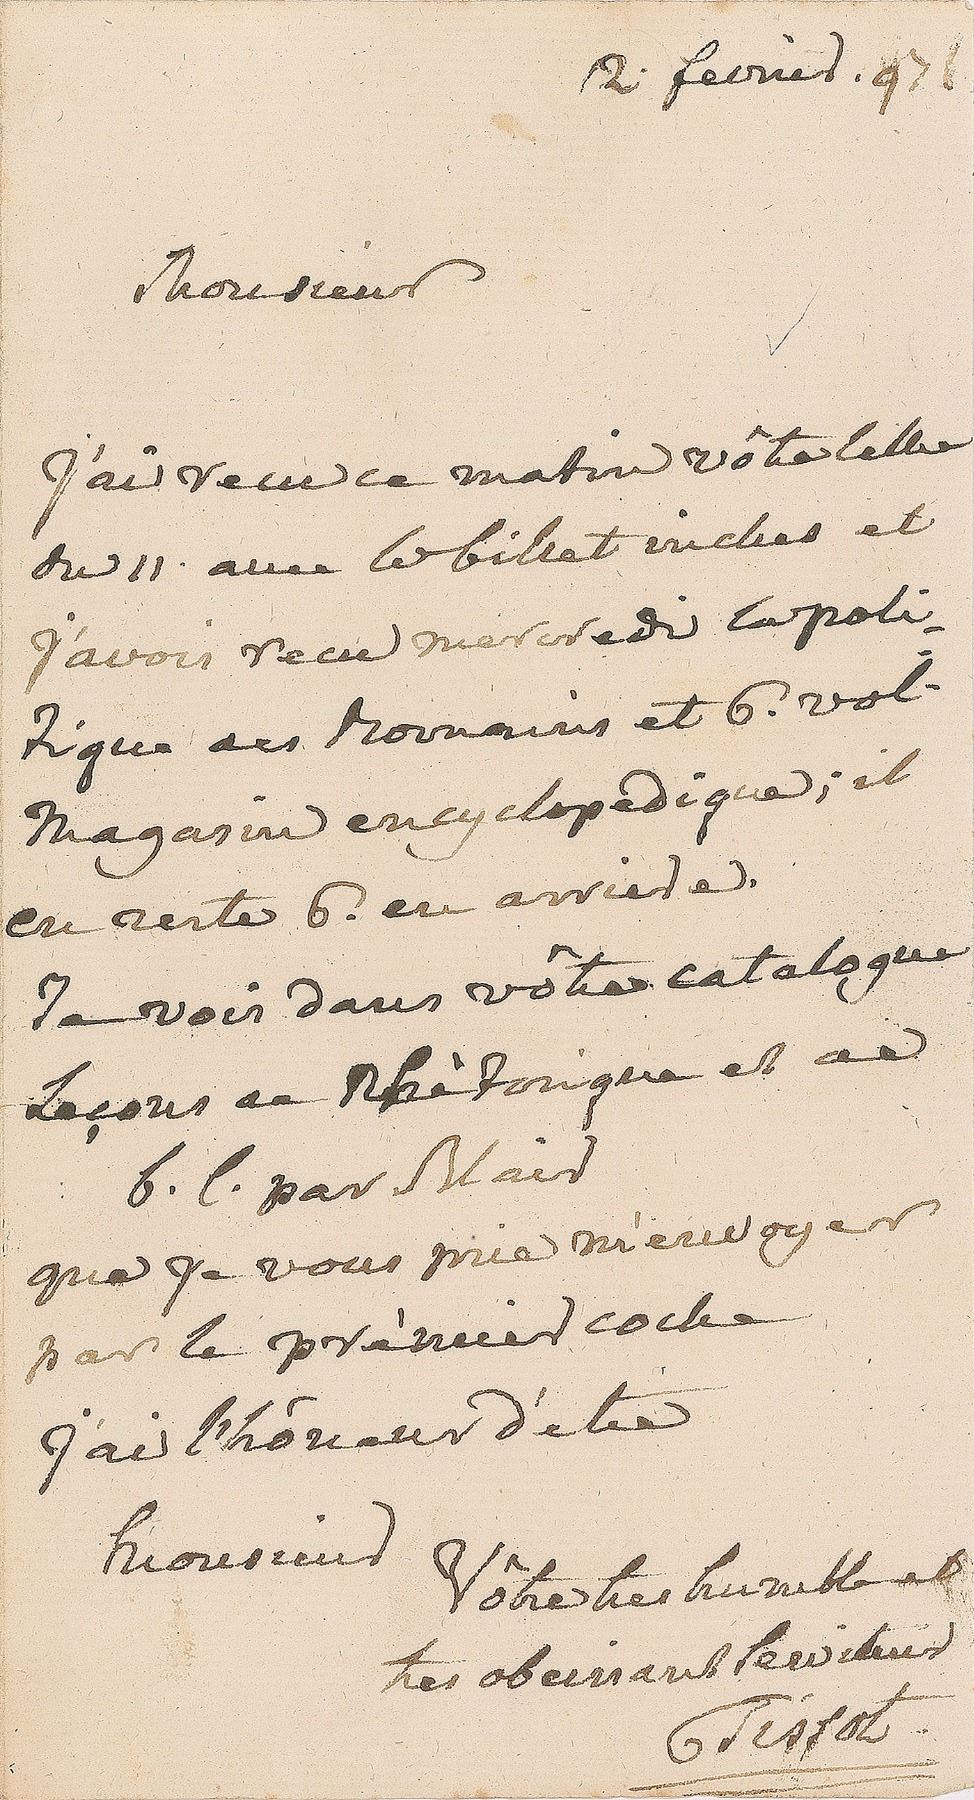 12. fevrier. 97
Monsieur
J'ai recu ce matin vôtre lettre
du 11. avec le billet inclus et
j'avois recu mercredi la poli-
tique des Romains et 6. vol.
Magasin encyclopédique; il
en reste 6. en arriere.
Je vois dans vôtre catalogue
Leçons de Rhètorique et de
b. l. par Blair
que je vous prie m'envoyer
par le prémier coche
j'ai l'hôneur d'etre
Monsieur
Vôtre tres humble et
tres obeissant serviteur
Tissot